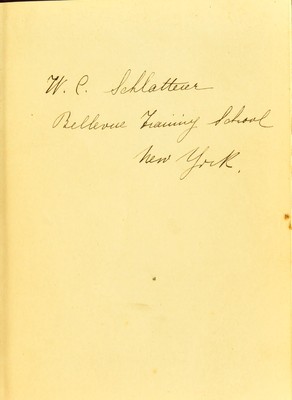 W. C. Schlatteur
Bellevue Training School
New York.